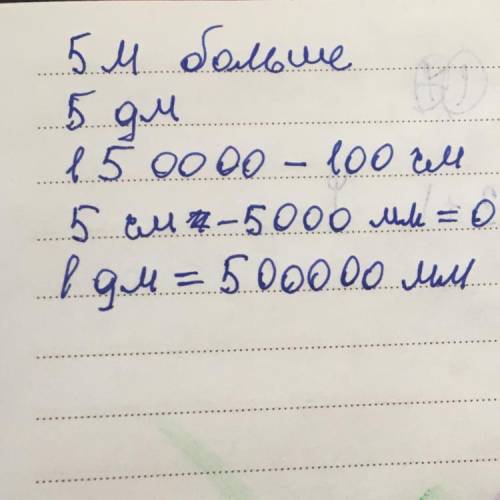 5 м больше
5 дм
1 5 0000 - 100 см
5 см - 5000 мм = 0
1 дм = 500000 мм